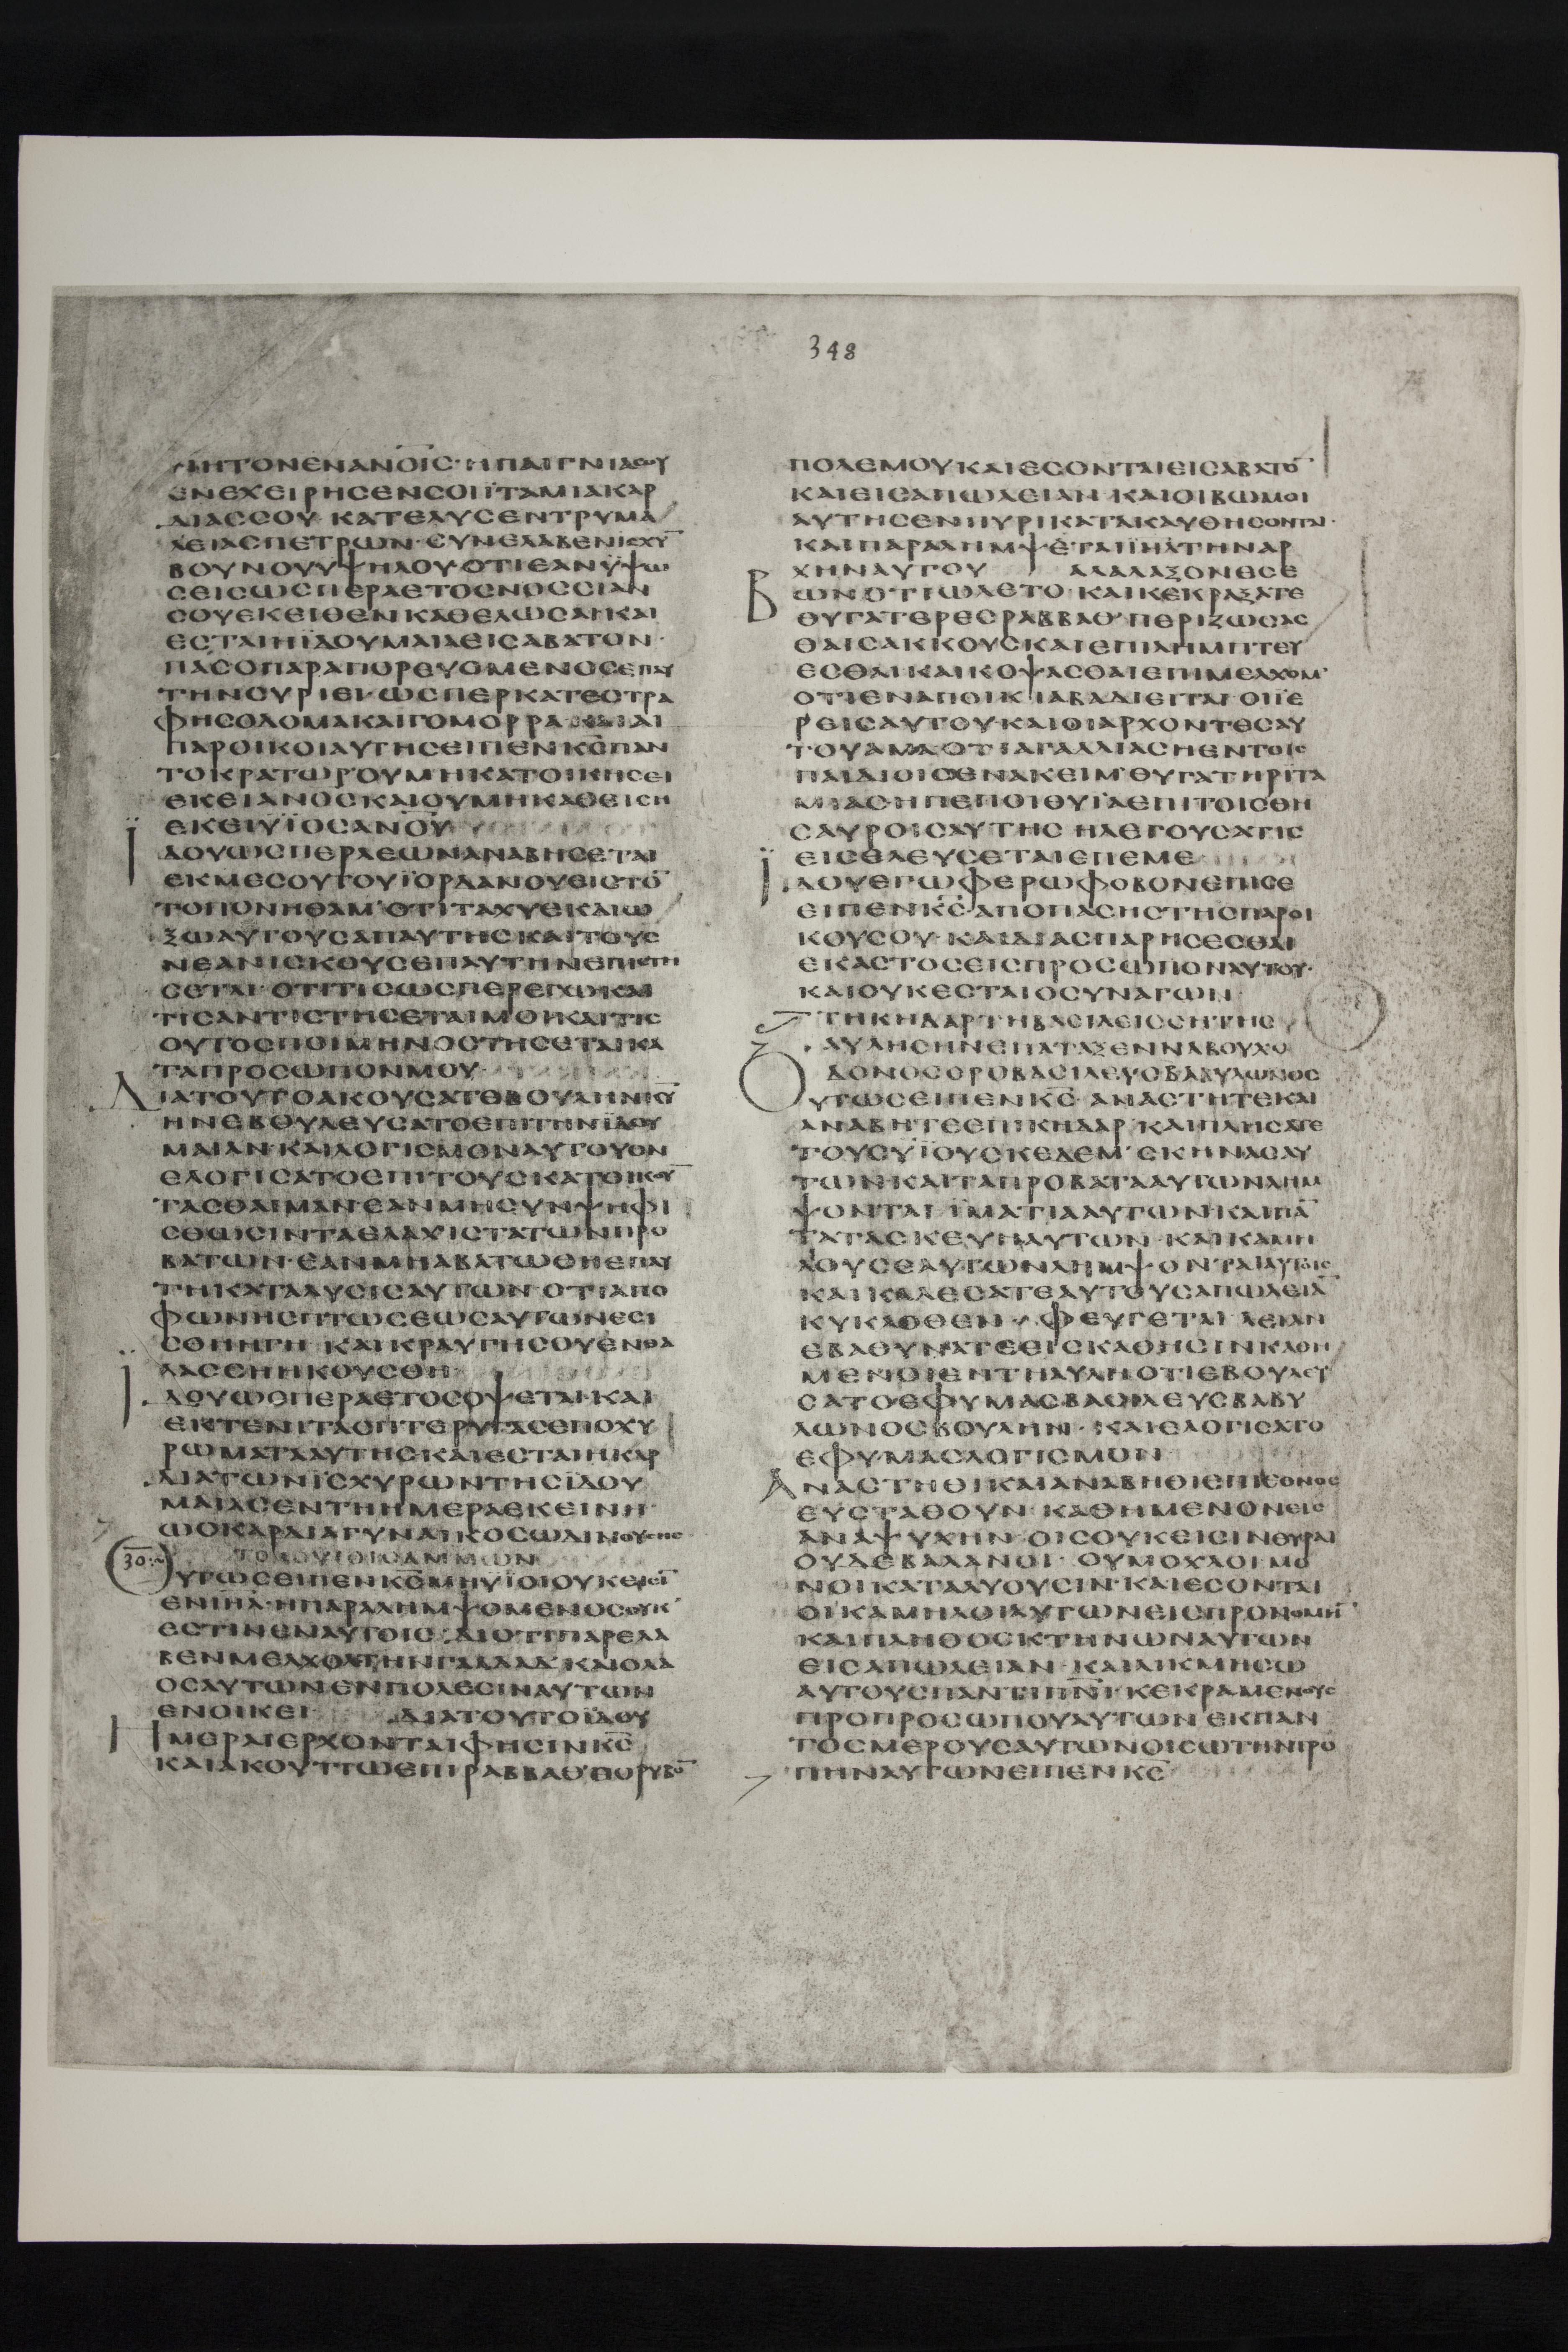 348
ΜΗΤΟΝΕΝΑΝΟΙΣ· Η ΠΑΙΓΝΙΑϹΟΥ
ΕΝΕΧΕΙΡΗϹΕΝϹΟΙΪΤΑΜΙΑΚΑΡ
ΔΙΑϹϹΟΥ· ΚΑΤΕΛΥϹΕΝΤΡΥΜΑ
ΛΕΙΑϹΠΕΤΡΩΝ· ϹΥΝΕΛΑΒΕΝΙϹΧΥ̅
ΒΟΥΝΟΥΥΨΗΛΟΥ· ΟΤΙΕΑΝΫΨΩ
ϹΕΙϹΩϹΠΕΡΑΕΤΟϹΝΟϹϹΙΑΝ
ϹΟΥΕΚΕΙΘΕΝΚΑΘΕΛΩϹΑΙΚΑΙ
ΕϹΤΑΙΗΪΔΟΥΜΑΙΑΕΙϹΑΒΑΤΟΝ·
ΠΑϹΟΠΑΡΑΠΟΡΕΥΟΜΕΝΟϹΕΠΑΥ
ΤΗΝϹΥΡΙΕΙ· ΩϹΠΕΡΚΑΤΕϹΤΡΑ
ΦΗϹΟΔΟΜΑΚΑΙΓΟΜΟΡΡΑ ΚΑΙΑΙ
ΠΑΡΟΙΚΟΙΑΥΤΗϹΕΙΠΕΝΚ̅Ϲ̅ΠΑΝ
ΤΟΚΡΑΤΩΡΟΥΜΗΚΑΤΟΙΚΗϹΕΙ
ΕΚΕΙΑΝΟϹΚΑΙΟΥΜΗΚΑΘΕΙϹΗ
ΕΚΕΙΥΪΟϹΑΝΟΥ
ΪΔΟΥΩϹΠΕΡΛΕΩΝΑΝΑΒΗϹΕΤΑΙ
ΕΚΜΕϹΟΥΤΟΥΪΟΡΔΑΝΟΥΕΙϹΤΟ̅
ΤΟΠΟΝΗΘΑΜ· ΟΤΙΤΑΧΥΕΚΔΙΩ
ΞΩΑΥΤΟΥϹΑΠΑΥΤΗϹΚΑΙΤΟΥϹ
ΝΕΑΝΙϹΚΟΥϹΕΠΑΥΤΗΝΕΠΙϹΤΗ
ϹΕΤΑΙ· ΟΤΙΤΙϹΩϹΠΕΡΕΓΩΚΑΙ
ΤΙϹΑΝΤΙϹΤΗϹΕΤΑΙΜΟΙΚΑΙΤΙϹ
ΟΥΤΟϹΠΟΙΜΗΝΟϹΤΗϹΕΤΑΙΚΑ
ΤΑΠΡΟϹΩΠΟΝΜΟΥ
ΔΙΑΤΟΥΤΟΑΚΟΥϹΑΤΕΒΟΥΛΗΝΚ̅Υ̅
ΗΝΕΒΟΥΛΕΥϹΑΤΟΕΠΙΤΗΝΪΔΟΥ
ΜΑΙΑΝ· ΚΑΙΛΟΓΙϹΜΟΝΑΥΤΟΥΟΝ
ΕΛΟΓΙϹΑΤΟΕΠΙΤΟΥϹΚΑΤΟΙΚΟΥ̅
ΤΑϹΘΑΙΜΑΝΕΑΝΜΗϹΥΝΨΗΦΙ
ϹΘΩϹΙΝΤΑΕΛΑΧΙϹΤΑΤΩΝΠΡΟ
ΒΑΤΩΝ· ΕΑΝΜΗΑΒΑΤΩΘΗΕΠΑΥ
ΤΗΚΑΤΑΛΥϹΙϹΑΥΤΩΝ· ΟΤΙΑΠΟ
ΦΩΝΗϹΠΤΩϹΕΩϹΑΥΤΩΝΕϹΙ
ϹΘΗΗΓΗ· ΚΑΙΚΡΑΥΓΗϹΟΥΕΝΘΑ
ΛΑϹϹΗΗΚΟΥϹΘΗ
ΪΔΟΥΩϹΠΕΡΑΕΤΟϹΟΨΕΤΑΙ· ΚΑΙ
ΕΚΤΕΝΙΤΑϹΠΤΕΡΥΓΑϹΕΠΟΧΥ
ΡΩΜΑΤΑΑΥΤΗϹΚΑΙΕϹΤΑΙΗΚΑΡ
ΔΙΑΤΩΝΪϹΧΥΡΩΝΤΗϹΪΔΟΥ
ΜΑΙΑϹΕΝΤΗΗΜΕΡΑΕΚΕΙΝΗ
ΩϹΚΑΡΔΙΑΓΥΝΑΙΚΟϹΩΔΙΝΟΥϹΗϹ
30 ΤΟΙϹΥΙΟΙϹΑΜΜΩΝ
ΥΤΩϹΕΙΠΕΝΚ̅Ϲ̅ΜΗΥΪΟΙΟΥΚΕΙϹΙ̅
ΕΝΙΗΛ· ΗΠΑΡΑΛΗΜΨΟΜΕΝΟϹΟΥΚ
ΕϹΤΙΝΕΝΑΥΤΟΙϹ· ΔΙΟΤΙΠΑΡΕΛΑ
ΒΕΝΜΕΛΧΟΛΤΗΝΓΑΛΑΑΔ· ΚΑΙΟΛΑ
ΟϹΑΥΤΩΝΕΝΠΟΛΕϹΙΝΑΥΤΩΝ
ΕΝΟΙΚΕΙ ΔΙΑΤΟΥΤΟΪΔΟΥ
ΗΜΕΡΑΙΕΡΧΟΝΤΑΙΦΗϹΙΝΚ̅Ϲ̅
ΚΑΙΑΚΟΥΤΙΩΕΠΙΡΑΒΒΑΘ· ΘΟΡΥΒΟ̅
ΠΟΛΕΜΟΥΚΑΙΕϹΟΝΤΑΙΕΙϹΑΒΑΤΟ̅
ΚΑΙΕΙϹΑΠΩΛΕΙΑΝ· ΚΑΙΟΙΒΩΜΟΙ
ΑΥΤΗϹΕΝΠΥΡΙΚΑΤΑΚΑΥΘΗϹΟΝΤΑΙ·
ΚΑΙΠΑΡΑΛΗΜΨΕΤΑΙΪΗΛΤΗΝΑΡ
ΧΗΝΑΥΤΟΥ ΑΛΑΛΑΞΟΝΕϹΕ
ΒΩΝΟΤΙΩΛΕΤΟ· ΚΑΙΚΕΚΡΑΞΑΤΕ
ΘΥΓΑΤΕΡΕϹΡΑΒΒΑΘ· ΠΕΡΙΖΩϹΑϹ
ΘΑΙϹΑΚΚΟΥϹΚΑΙΕΠΙΛΗΜΠΤΕΥ
ΕϹΘΑΙΚΑΙΚΟΨΑϹΘΑΙΕΠΙΜΕΛΧΟΜ·
ΟΤΙΕΝΑΠΟΙΚΙΑΒΑΔΙΕΙΤΑΙ· ΟΙΪΕ
ΡΕΙϹΑΥΤΟΥΚΑΙΟΙΑΡΧΟΝΤΕϹΑΥ
ΤΟΥΑΜΑ ΟΤΙΑΓΑΛΛΙΑϹΗΕΝΤΟΙϹ
ΠΑΙΔΙΟΙϹΕΝΑΚΕΙΜ· ΘΥΓΑΤΗΡΪΤΑ
ΜΙΑϹΗΠΕΠΟΙΘΥΪΑΕΠΙΤΟΙϹΘΗ
ϹΑΥΡΟΙϹΑΥΤΗϹ ΗΛΕΓΟΥϹΑΤΙϹ
ΕΙϹΕΛΕΥϹΕΤΑΙΕΠΕΜΕ
ΪΔΟΥΕΓΩΦΕΡΩΦΟΒΟΝΕΠΙϹΕ
ΕΙΠΕΝΚ̅Ϲ̅· ΑΠΟΠΑϹΗϹΤΗϹΠΑΡΟΙ
ΚΟΥϹΟΥ· ΚΑΙΔΙΑϹΠΑΡΗϹΕϹΘΑΙ
ΕΚΑϹΤΟϹΕΙϹΠΡΟϹΩΠΟΝΑΥΤΟΥ·
ΚΑΙΟΥΚΕϹΤΑΙΟϹΥΝΑΓΩΝ
ΤΗΚΗΔΑΡΤΗΒΑϹΙΛΕΙϹϹΗΤΗϹ
ΑΥΛΗϹΗΝΕΠΑΤΑΞΕΝΝΑΒΟΥΧΟ
ΔΟΝΟϹΟΡΟΒΑϹΙΛΕΥϹΒΑΒΥΛΩΝΟϹ
ΟΥΤΩϹΕΙΠΕΝΚ̅Ϲ̅· ΑΝΑϹΤΗΤΕΚΑΙ
ΑΝΑΒΗΤΕΕΠΙΚΗΔΑΡ· ΚΑΙΠΛΗϹΑΤΕ
ΤΟΥϹΥΪΟΥϹΚΕΔΕΜ· ϹΚΗΝΑϹΑΥ
ΤΩΝΚΑΙΤΑΠΡΟΒΑΤΑΑΥΤΩΝΛΗΜ
ΨΟΝΤΑΙ· ΪΜΑΤΙΑΑΥΤΩΝΚΑΙΠΑ̅
ΤΑΤΑϹΚΕΥΗΑΥΤΩΝ· ΚΑΙΚΑΜΗ
ΛΟΥϹΕΑΥΤΩΝΛΗΜΨΟΝΤΑΙΑΥΤΟΙϹ
ΚΑΙΚΑΛΕϹΑΤΕΑΥΤΟΥϹΑΠΩΛΕΙΑ̅
ΚΥΚΛΟΘΕΝ· ΦΕΥΓΕΤΑΙ ΛΕΙΑΝ
ΕΒΑΘΥΝΑΤΕΕΙϹΚΑΘΗϹΙΝΚΑΘΗ
ΜΕΝΟΙΕΝΤΗΑΥΛΗΟΤΙΕΒΟΥΛΕΥ
ϹΑΤΟΕΦΥΜΑϹΒΑϹΙΛΕΥϹΒΑΒΥ
ΛΩΝΟϹΒΟΥΛΗΝ· ΚΑΙΕΛΟΓΙϹΑΤΟ
ΕΦΥΜΑϹΛΟΓΙϹΜΟΝ
ΑΝΑϹΤΗΘΙΚΑΙΑΝΑΒΗΘΙΕΠΕΘΝΟϹ
ΕΥϹΤΑΘΟΥΝ· ΚΑΘΗΜΕΝΟΝΕΙϹ
ΑΝΑΨΥΧΗΝ· ΟΙϹΟΥΚΕΙϹΙΝΘΥΡΑΙ
ΟΥΔΕΒΑΛΑΝΟΙ· ΟΥΜΟΧΛΟΙΜΟ
ΝΟΙΚΑΤΑΛΥΟΥϹΙΝ· ΚΑΙΕϹΟΝΤΑΙ
ΟΙΚΑΜΗΛΟΙΑΥΤΩΝΕΙϹΠΡΟΝΟΜΗ̅
ΚΑΙΠΛΗΘΟϹΚΤΗΝΩΝΑΥΤΩΝ
ΕΙϹΑΠΩΛΕΙΑΝ· ΚΑΙΛΙΚΜΗϹΩ
ΑΥΤΟΥϹΠΑΝΤΙΠ̅Ν̅Ι̅· ΚΕΚΡΑΜΕΝΟΥϹ
ΠΡΟΠΡΟϹΩΠΟΥΑΥΤΩΝ· ΕΚΠΑΝ
ΤΟϹΜΕΡΟΥϹΑΥΤΩΝΟΙϹΩΤΗΝΤΡΟ
ΠΗΝΑΥΤΩΝΕΙΠΕΝΚ̅Ϲ̅